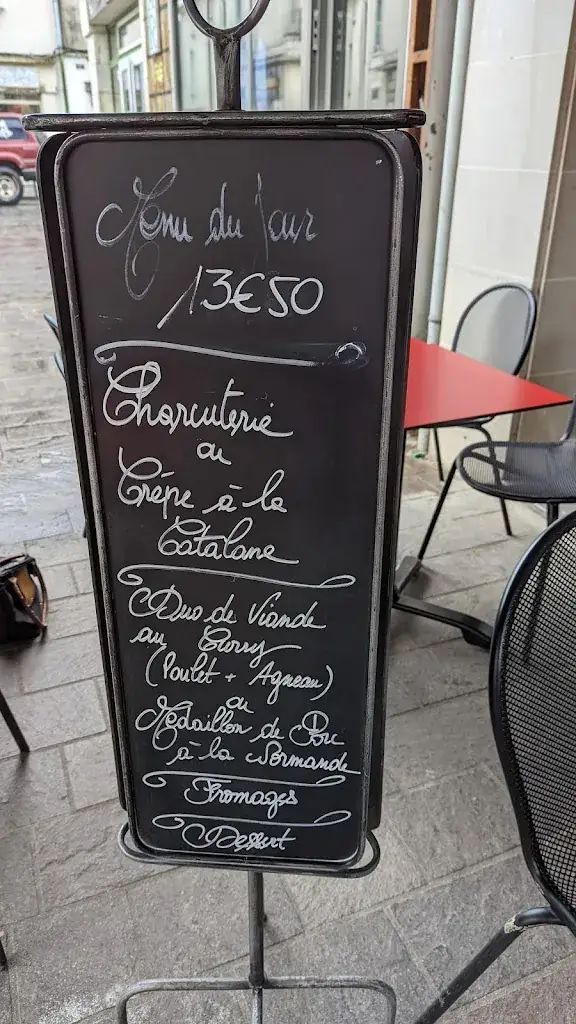 Menu du Jour
13€50
Charcuterie
ou
Crêpe à la
Catalane
Duo de Viande
au Curry
(Poulet + Agneau)
ou
Médaillon de Porc
à la Normande
Fromages
Dessert